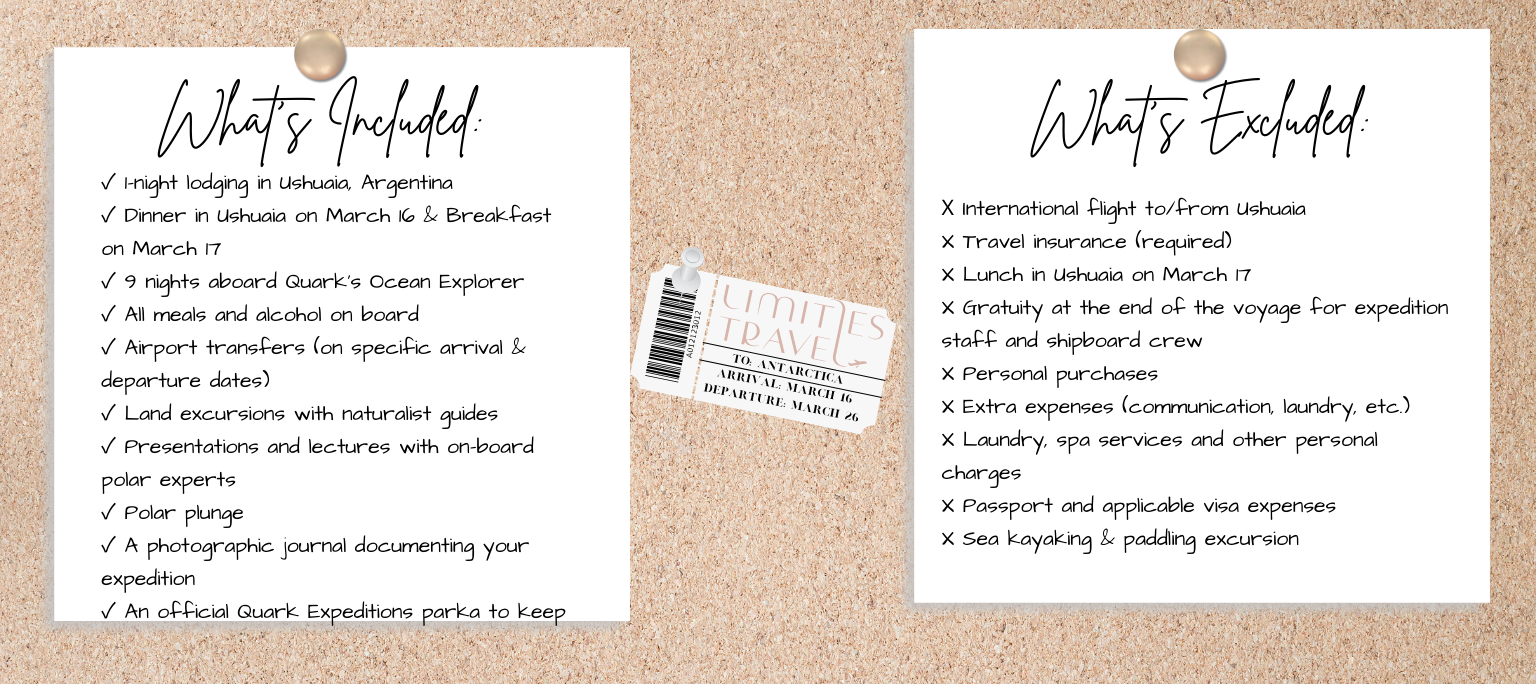 What's Included:
✓ 1-night lodging in Ushuaia, Argentina
✓ Dinner in Ushuaia on March 16 & Breakfast
on March 17
✓ 9 nights aboard Quark's Ocean Explorer
✓ All meals and alcohol on board
✓ Airport transfers (on specific arrival &
departure dates)
✓ Land excursions with naturalist guides
✓ Presentations and lectures with on-board
polar experts
✓ Polar plunge
✓ A photographic journal documenting your
expedition
✓ An official Quark Expeditions parka to keep
A012123012
LIMITLES
TRAVEL
TO: ANTARCTICA
ARRIVAL: MARCH 16
DEPARTURE: MARCH 26
What's Excluded:
X International flight to/from Ushuaia
X Travel insurance (required)
X Lunch in Ushuaia on March 17
X Gratuity at the end of the voyage for expedition
staff and shipboard crew
X Personal purchases
X Extra expenses (communication, laundry, etc.)
X Laundry, spa services and other personal
charges
X Passport and applicable visa expenses
X Sea kayaking & paddling excursion